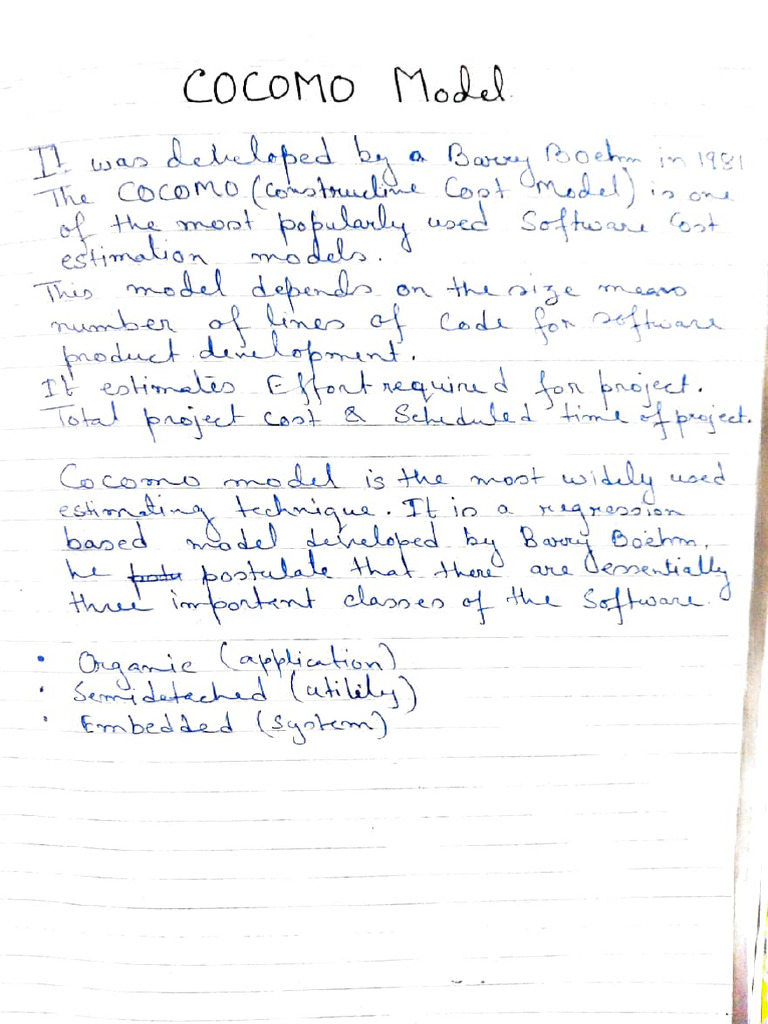 COCOMO Model
It was developed by a Barry Boehm in 1981
The COCOMO (Constructive Cost Model) is one
of the most popularly used Software Cost
estimation models.
This model depends on the size means
number of lines of code for software
product development.
It estimates Effort required for project.
Total project cost & Scheduled time of project.
Cocomo model is the most widely used
estimating technique. It is a regression
based model developed by Barry Boehm.
he postulate that there are essentially
three important classes of the Software.
• Organic (application)
• Semidetached (utility)
• Embedded (System)